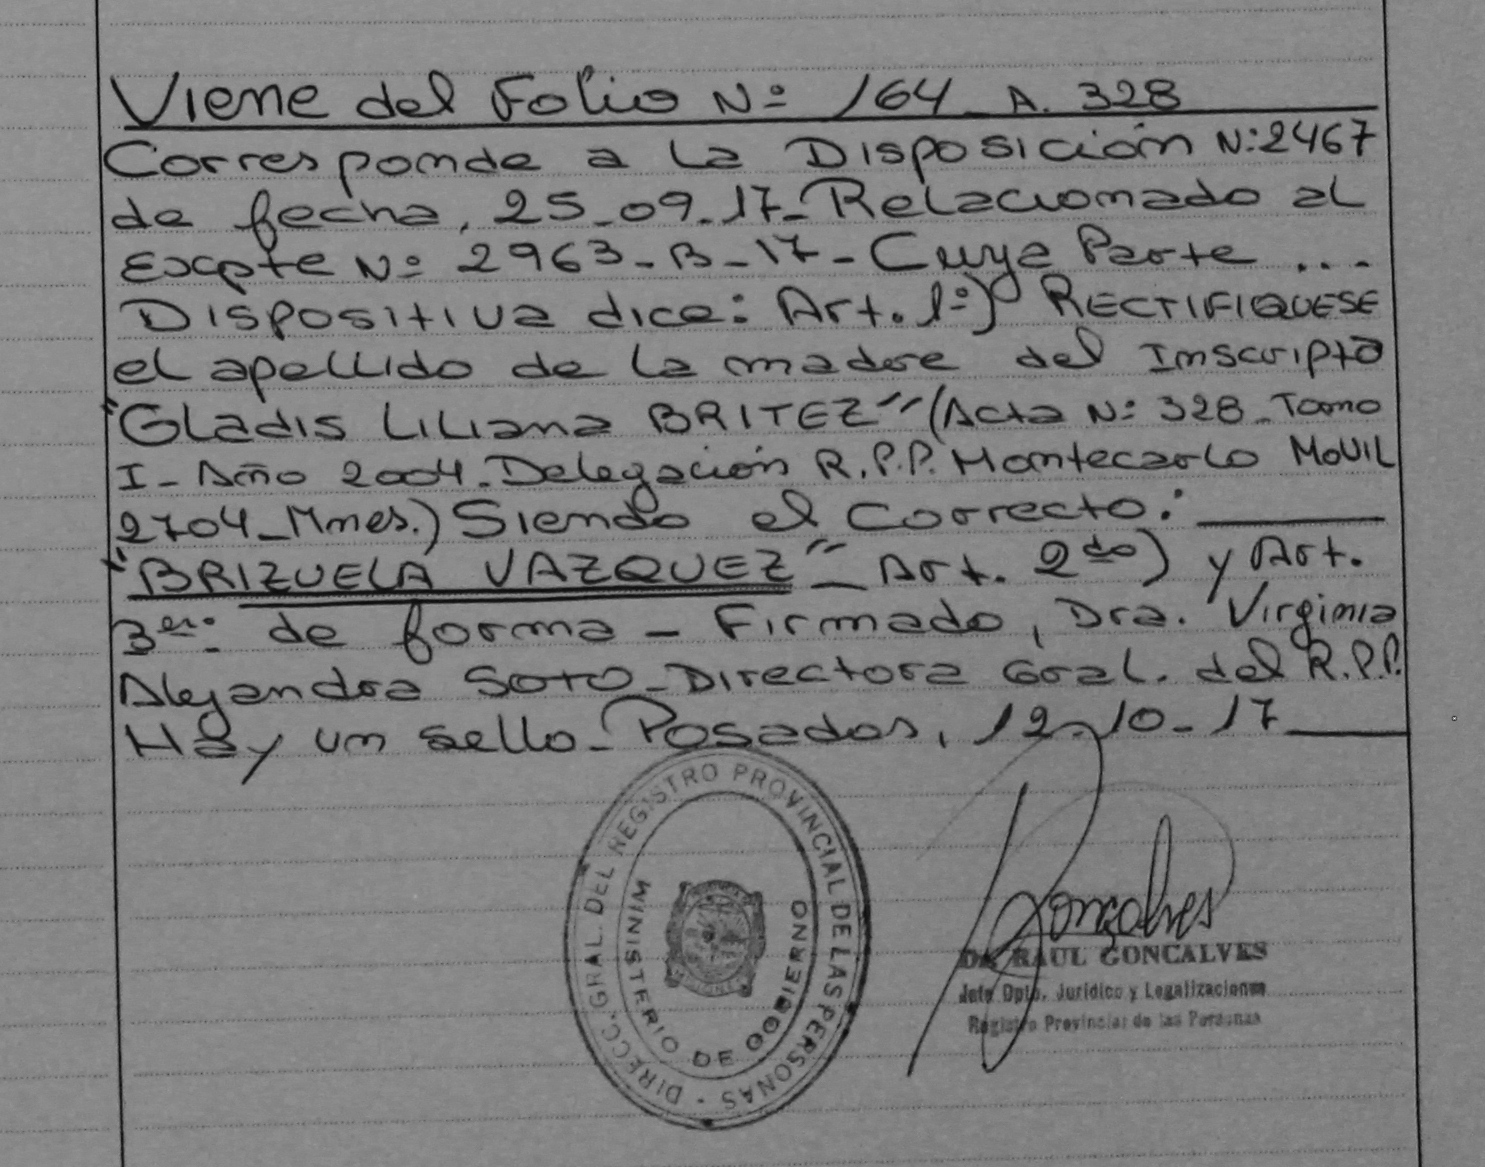 Viene del Folio Nº 164 A. 328
Corresponde a la Disposición N:2467
de fecha, 25-09-17- Relacionado al
Expte Nº 2963-B-17- Cuya Parte ...
Dispositiva dice: Art. 1º) RECTIFIQUESE
el apellido de la madre del Inscripto
"Gladis Liliana BRITEZ" (Acta Nº 328-Tomo
I- Año 2004-Delegación R.P.P. Montecarlo Movil
2704-Mnes.) Siendo el Correcto:
"BRIZUELA VAZQUEZ"- Art. 2do) y Art.
3ero: de forma - Firmado, Dra. Virginia
Alejandra SOTO-Directora Gral. del R.P.P.
Hay un sello- Posadas, 12-10-17
DIRECC. GRAL. DEL REGISTRO PROVINCIAL DE LAS PERSONAS
MINISTERIO DE GOBIERNO
Gonçalves
Dr. RAUL GONCALVES
Jefe Dpto. Jurídico y Legalizaciones
Registro Provincial de las Personas